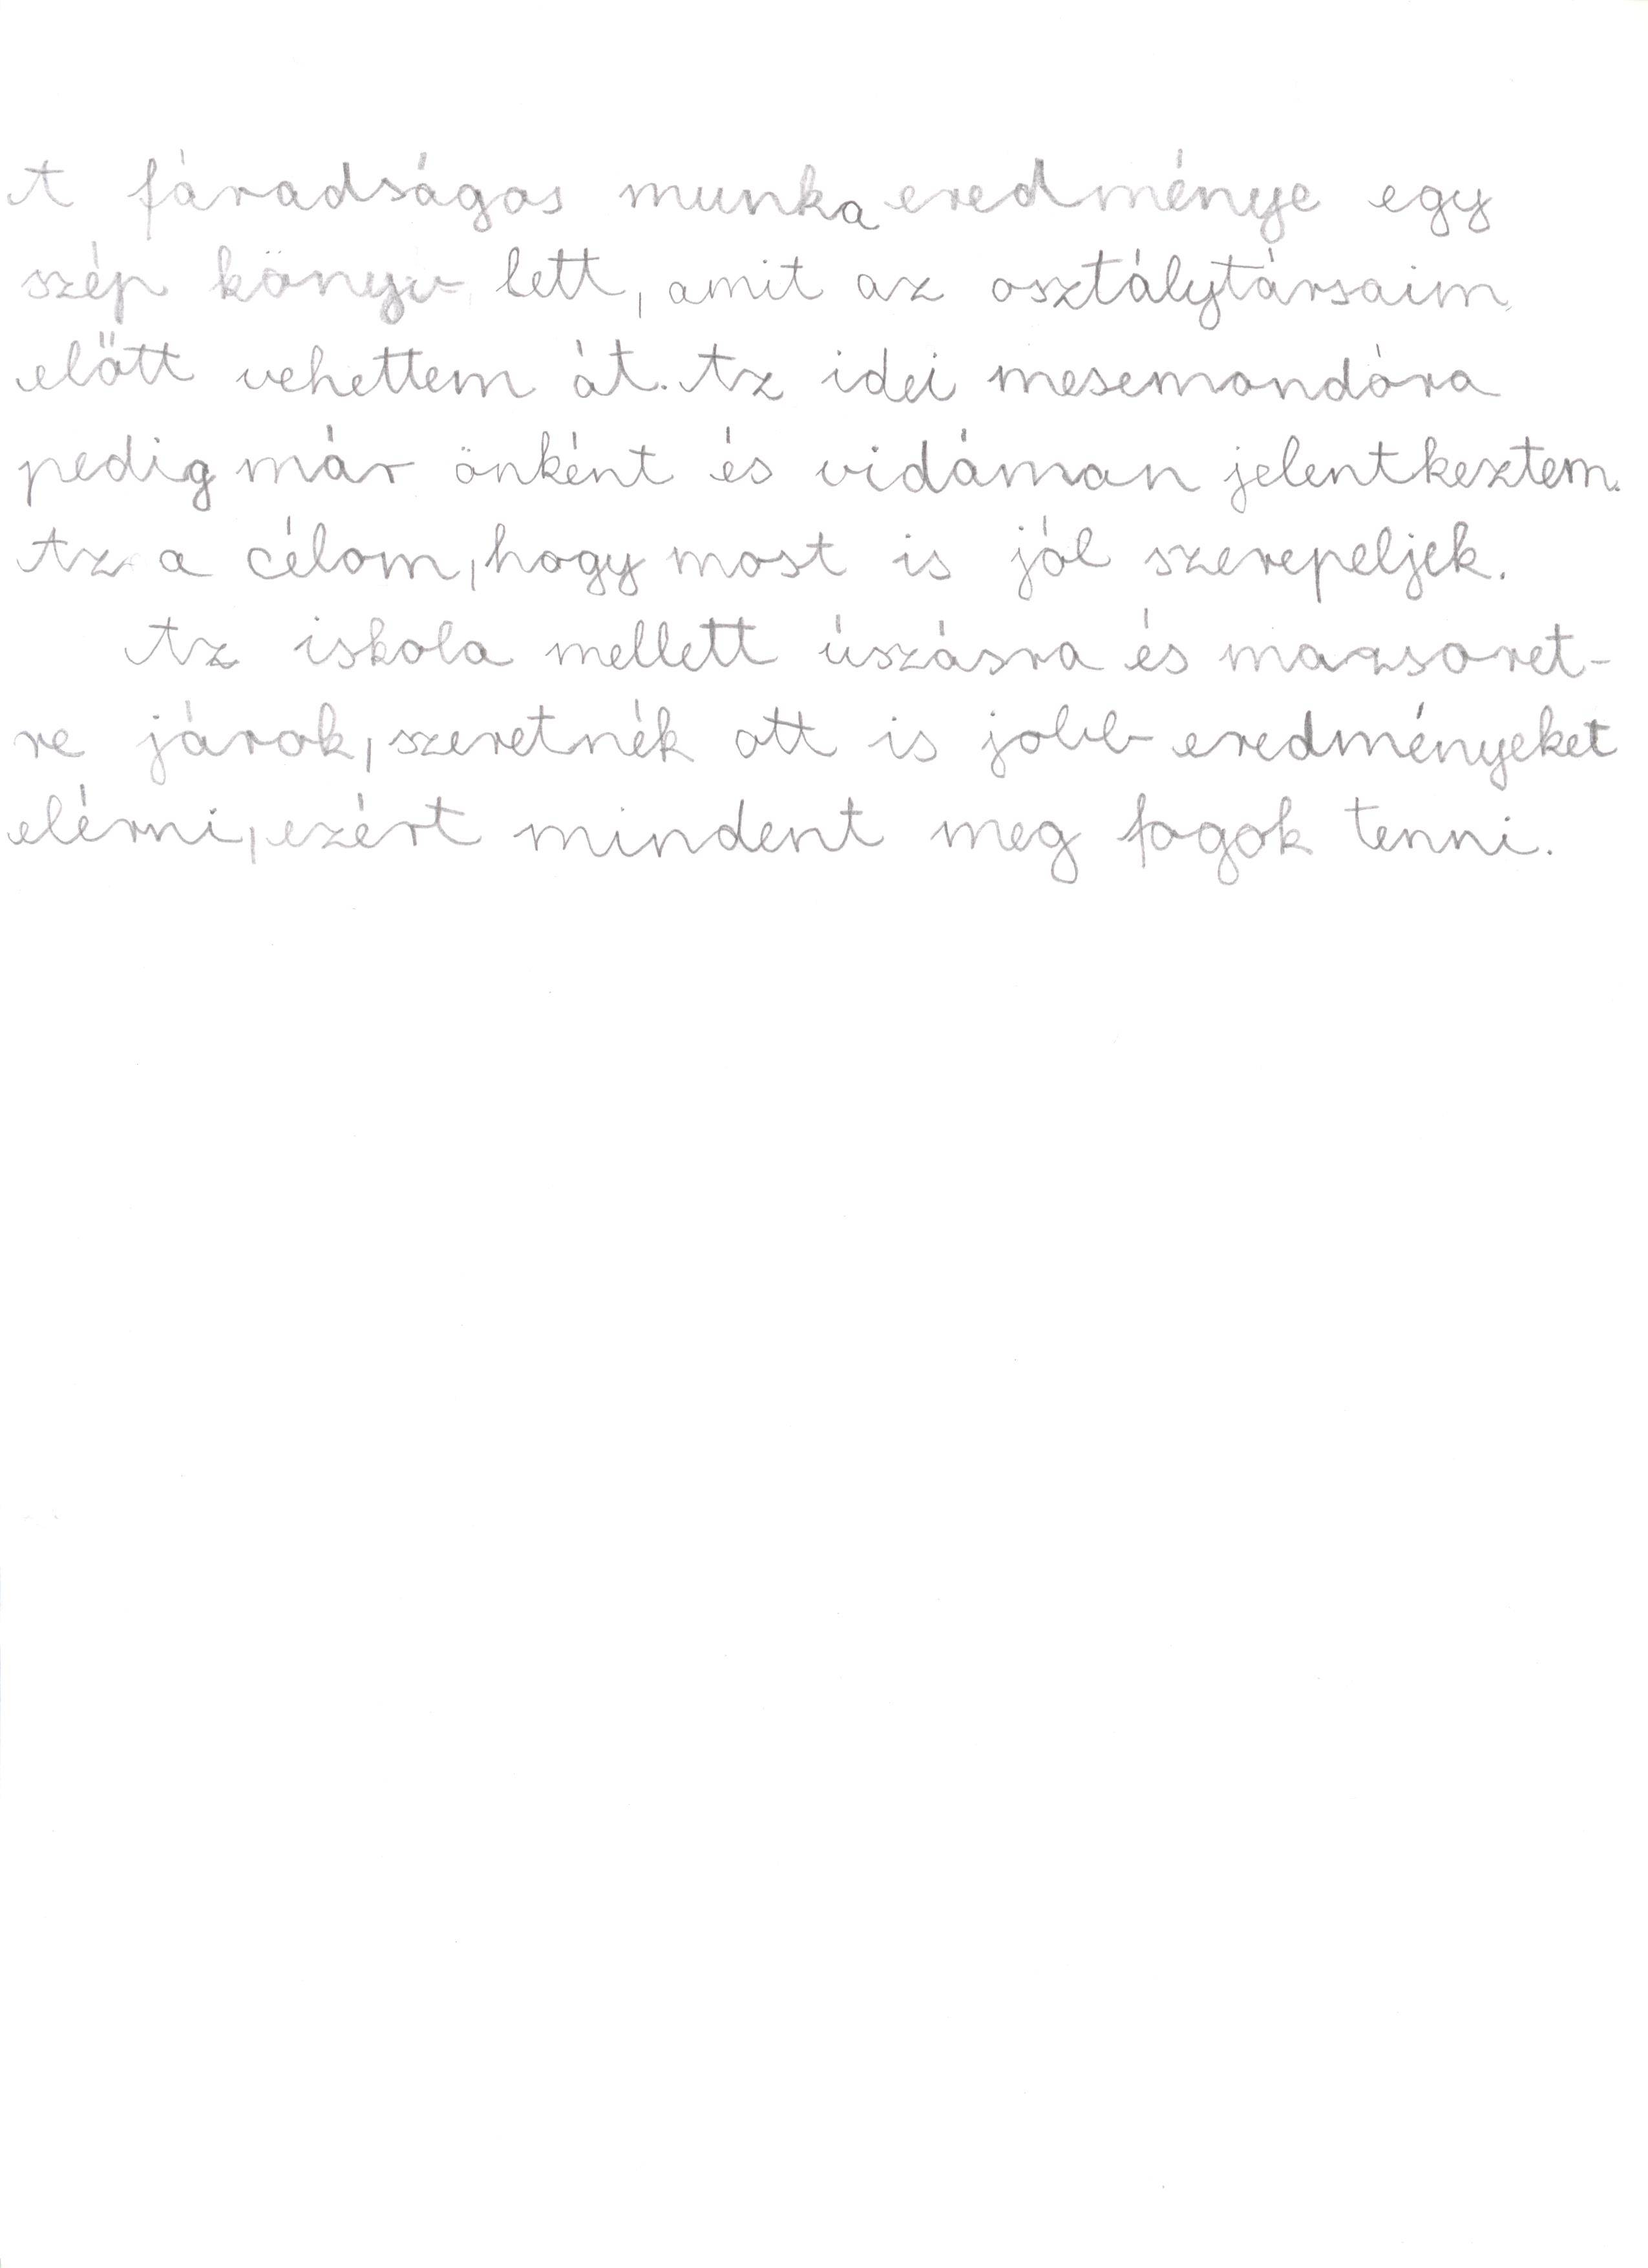 A fáradságos munka eredménye egy
szép könyv lett, amit az osztálytársaim
előtt vehettem át. Az idei mesemondóra
pedig már önként és vidáman jelentkeztem.
Az a célom, hogy most is jól szerepeljek.
Az iskola mellett úszásra és mazsoret-
re járok, szeretnék ott is jobb eredményeket
elérni, ezért mindent meg fogok tenni.